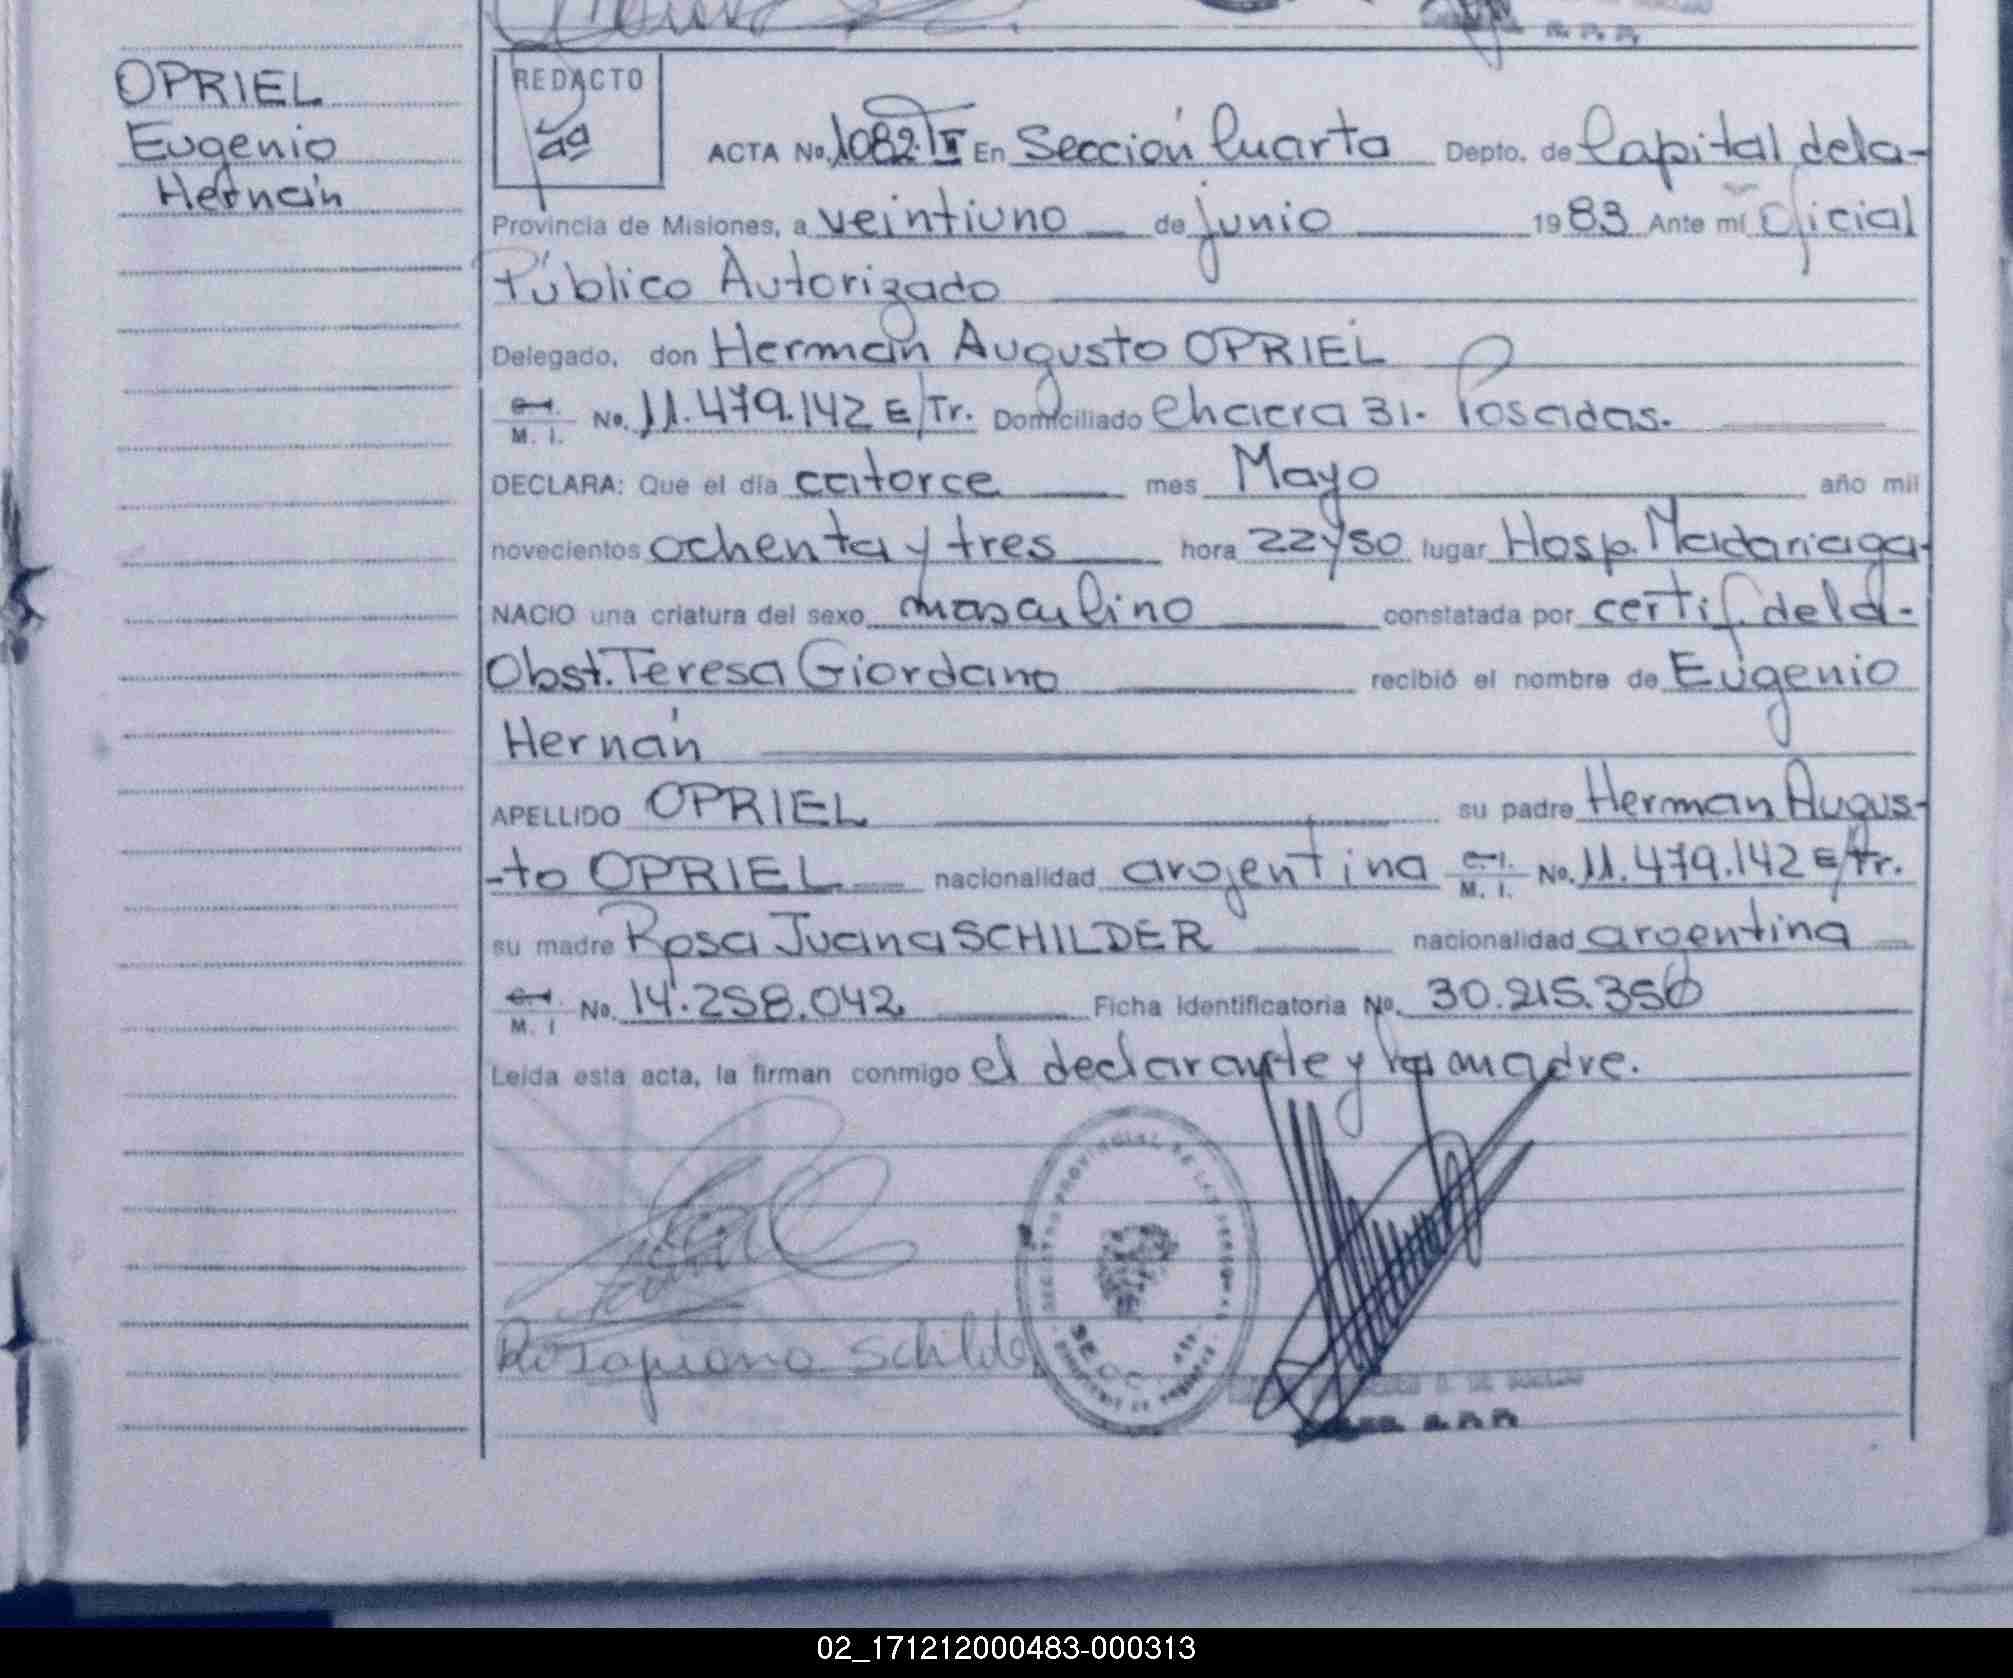 OPRIEL
Eugenio
Hernán
REDACTO
ACTA No. 1082. II En Sección Cuarta Depto. de Capital dela-
Provincia de Misiones, a veintiuno de junio 1983 Ante mí Oficial
Público Autorizado
Delegado, don Herman Augusto OPRIEL
C.I. M. I. No. 11.479.142 E/Tr. Domiciliado Chacra 31. Posadas.
DECLARA: Que el día catorce mes Mayo año mil
novecientos ochenta y tres hora 22y50 lugar Hosp. Madariaga-
NACIO una criatura del sexo masculino constatada por certif. dela-
Obst. Teresa Giordano recibió el nombre de Eugenio
Hernán
APELLIDO OPRIEL su padre Herman Augus-
-to OPRIEL nacionalidad argentina C.I. M. I. No. 11.479.142 E/Tr.
su madre Rosa Juana SCHILDER nacionalidad argentina
C.I. M. I No. 14.258.042 Ficha Identificatoria No. 30.215.350
Leída esta acta, la firman conmigo el declarante y la madre.
Schilder
02_171212000483-000313